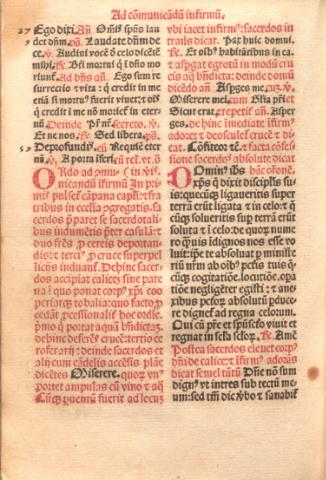 Ad cōmunicādū infirmū.
27 Ego dixi. Añ. Omīs sp̄ns lau
det dñm. p̄s. Laudate dñm de ce
v̄. Audiui vocē ō celo dicētē
mihi. R̄. Bti mortui q̄ i dño mo
riunt̄. Ad b̄ns añ. Ego sum re
surrectio ⁊ vita: q̄ credit in me
etiā si mortuꝰ fuerit viuet: ⁊ oīs
q̄ credit i me nō moriet̄ in eter
nū. Deinde Pr̄ nr̄. secreto. v̄.
Et ne nos. R̄. Sed libera.
5 Deprofundis. cū Requiē eter
nā. v̄. A porta iferi. cū rel. vt. s̄.
ORdo ad
nicandū infirmū. In pri
mis pulset̄ cāpana
tribus in ecclīa ꝯgregatis.
cerdos paret se sacerdotali
bus indumētis p̄ter casulā: ⁊
duo fr̄es
di: ⁊ terciꝰ p̄ cruce superpel
liciis induant̄. Dehinc sacer
dos accipiat calicē sine pate
na: quo ponat̄ corpꝰ xp̄i coo
periatq̄ tobalia: quo facto p̄
cedāt p̄cessionalit̄ hoc ordīe.
p̄mo q̄ portat aquā bn̄dictā
dehinc deferēs crucē: tertio ce
roferarii: deinde sacerdos et
alii cum cādelis accēsis plāe
dicētes Miserere. quorū vnꝰ
portet ampulas cū vino ⁊ aq̄
Cūq̄ puentū fuerit ad locū
vbi iacet infirmꝰ: sacerdos in
trās dicat. Pax huic domui.
R̄. Et oībꝰ habitātibus in ea.
⁊ aspgat egrotū in modū cru
cis aq̄ bn̄dicta: deinde domū
dicēdo añ. Asperges me. v̄.
Miserere mei. cum Glīa pr̄i et
Sicut erat. repetit̄ añ. Asper
ges. de hinc imediate ifirmꝰ
adoret ⁊ deosculet̄ crucē ⁊ di
cat. Cōfiteor ⁊c̄. ⁊ facta cōfes
sione sacerdos absolutē dicat
DOminꝰ ihs̄ hāc ofonē.
xp̄s q̄ dixit disciplis
suis: quecūq̄ ligaueritis super
terrā erūt ligata ⁊ in celo: ⁊ q̄
cūq̄ solueritis sup terrā erūt
soluta ⁊ i celo: de quoꝝ nume
ro quis idignos nos esse vo
luit: ip̄e te absoluat p̄ministe
riū nr̄m ab oībꝰ pctīs tuis q̄
cūq̄ cogitatiōe. locutiōe. opa
tiōe negligēter egisti: ⁊ a ne
xibus pctoꝝ absolutū pduce
re dignet̄ ad regna celorum.
Qui cū pr̄e et spūscto viuit et
regnat in scl̄a scl̄oꝝ. R̄. Amē
Postea sacerdos eleuet corpꝰ
dñi de calice: ⁊ ifirmꝰ adorās
dicat semel tātū Dñe nō sum
dignꝰ vt intres sub tectū me
um: sed tm̄ dic v̄bo ⁊ sanabit̄